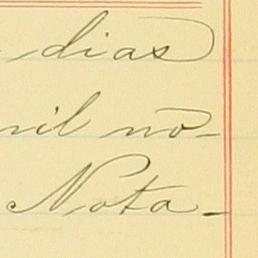 dias
mil no-
Nota-